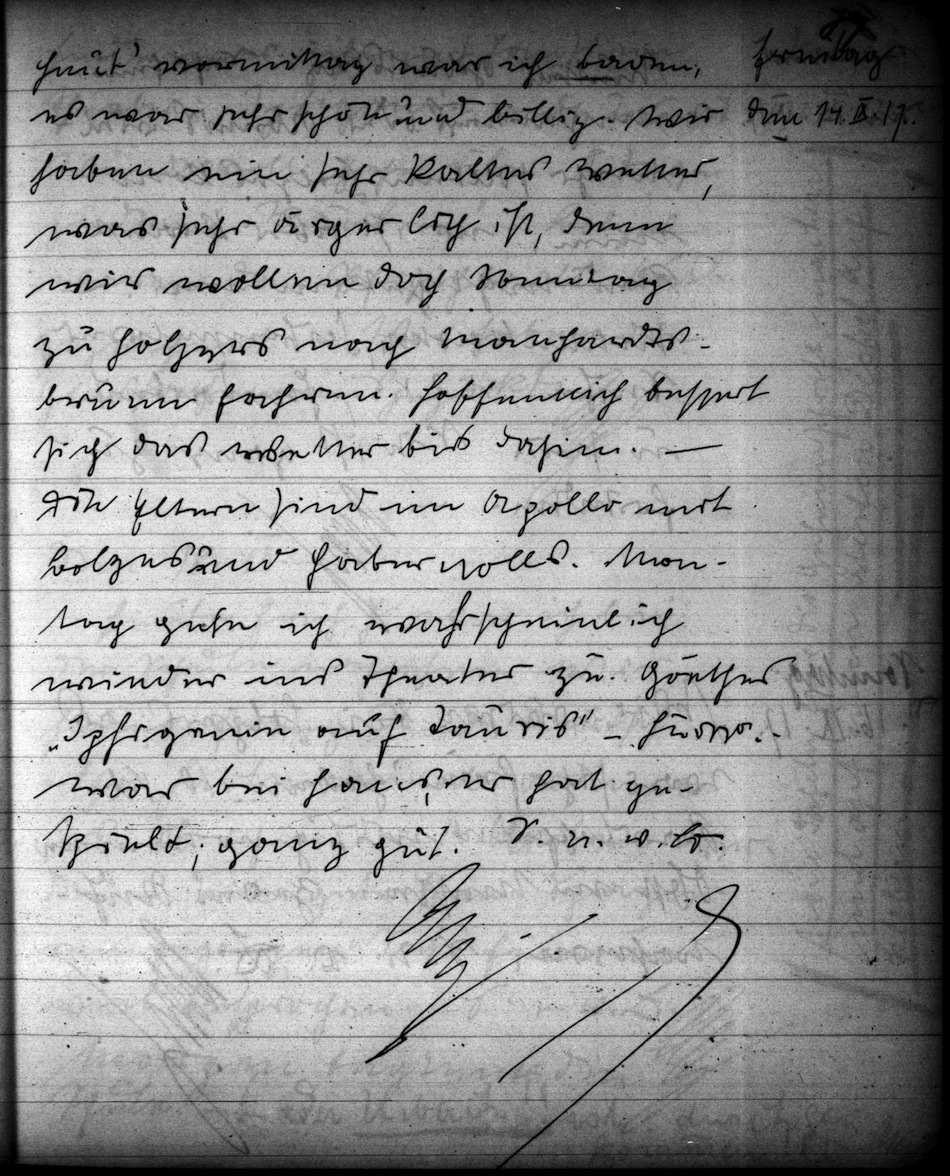 Heut' vormittag war ich baden, Freitag
es war sehr schön und billig. Wir den 14. IX. 17.
haben ein sehr kaltes Wetter,
was sehr ärgerlich ist, denn
wir wollen doch Sonntag
zu Holzers nach Manhardts-
brunn fahren. Hoffentlich bessert
sich das Wetter bis dahin. —
Die Eltern sind im Apollo mit
und Haberzolls. Mon-
tag gehe ich wahrscheinlich
wieder ins Theater zu. Goethes
„Iphigenie auf Tauris" –
war bei Hans, er hat ge-
spielt; ganz gut. S. u. w. Co.